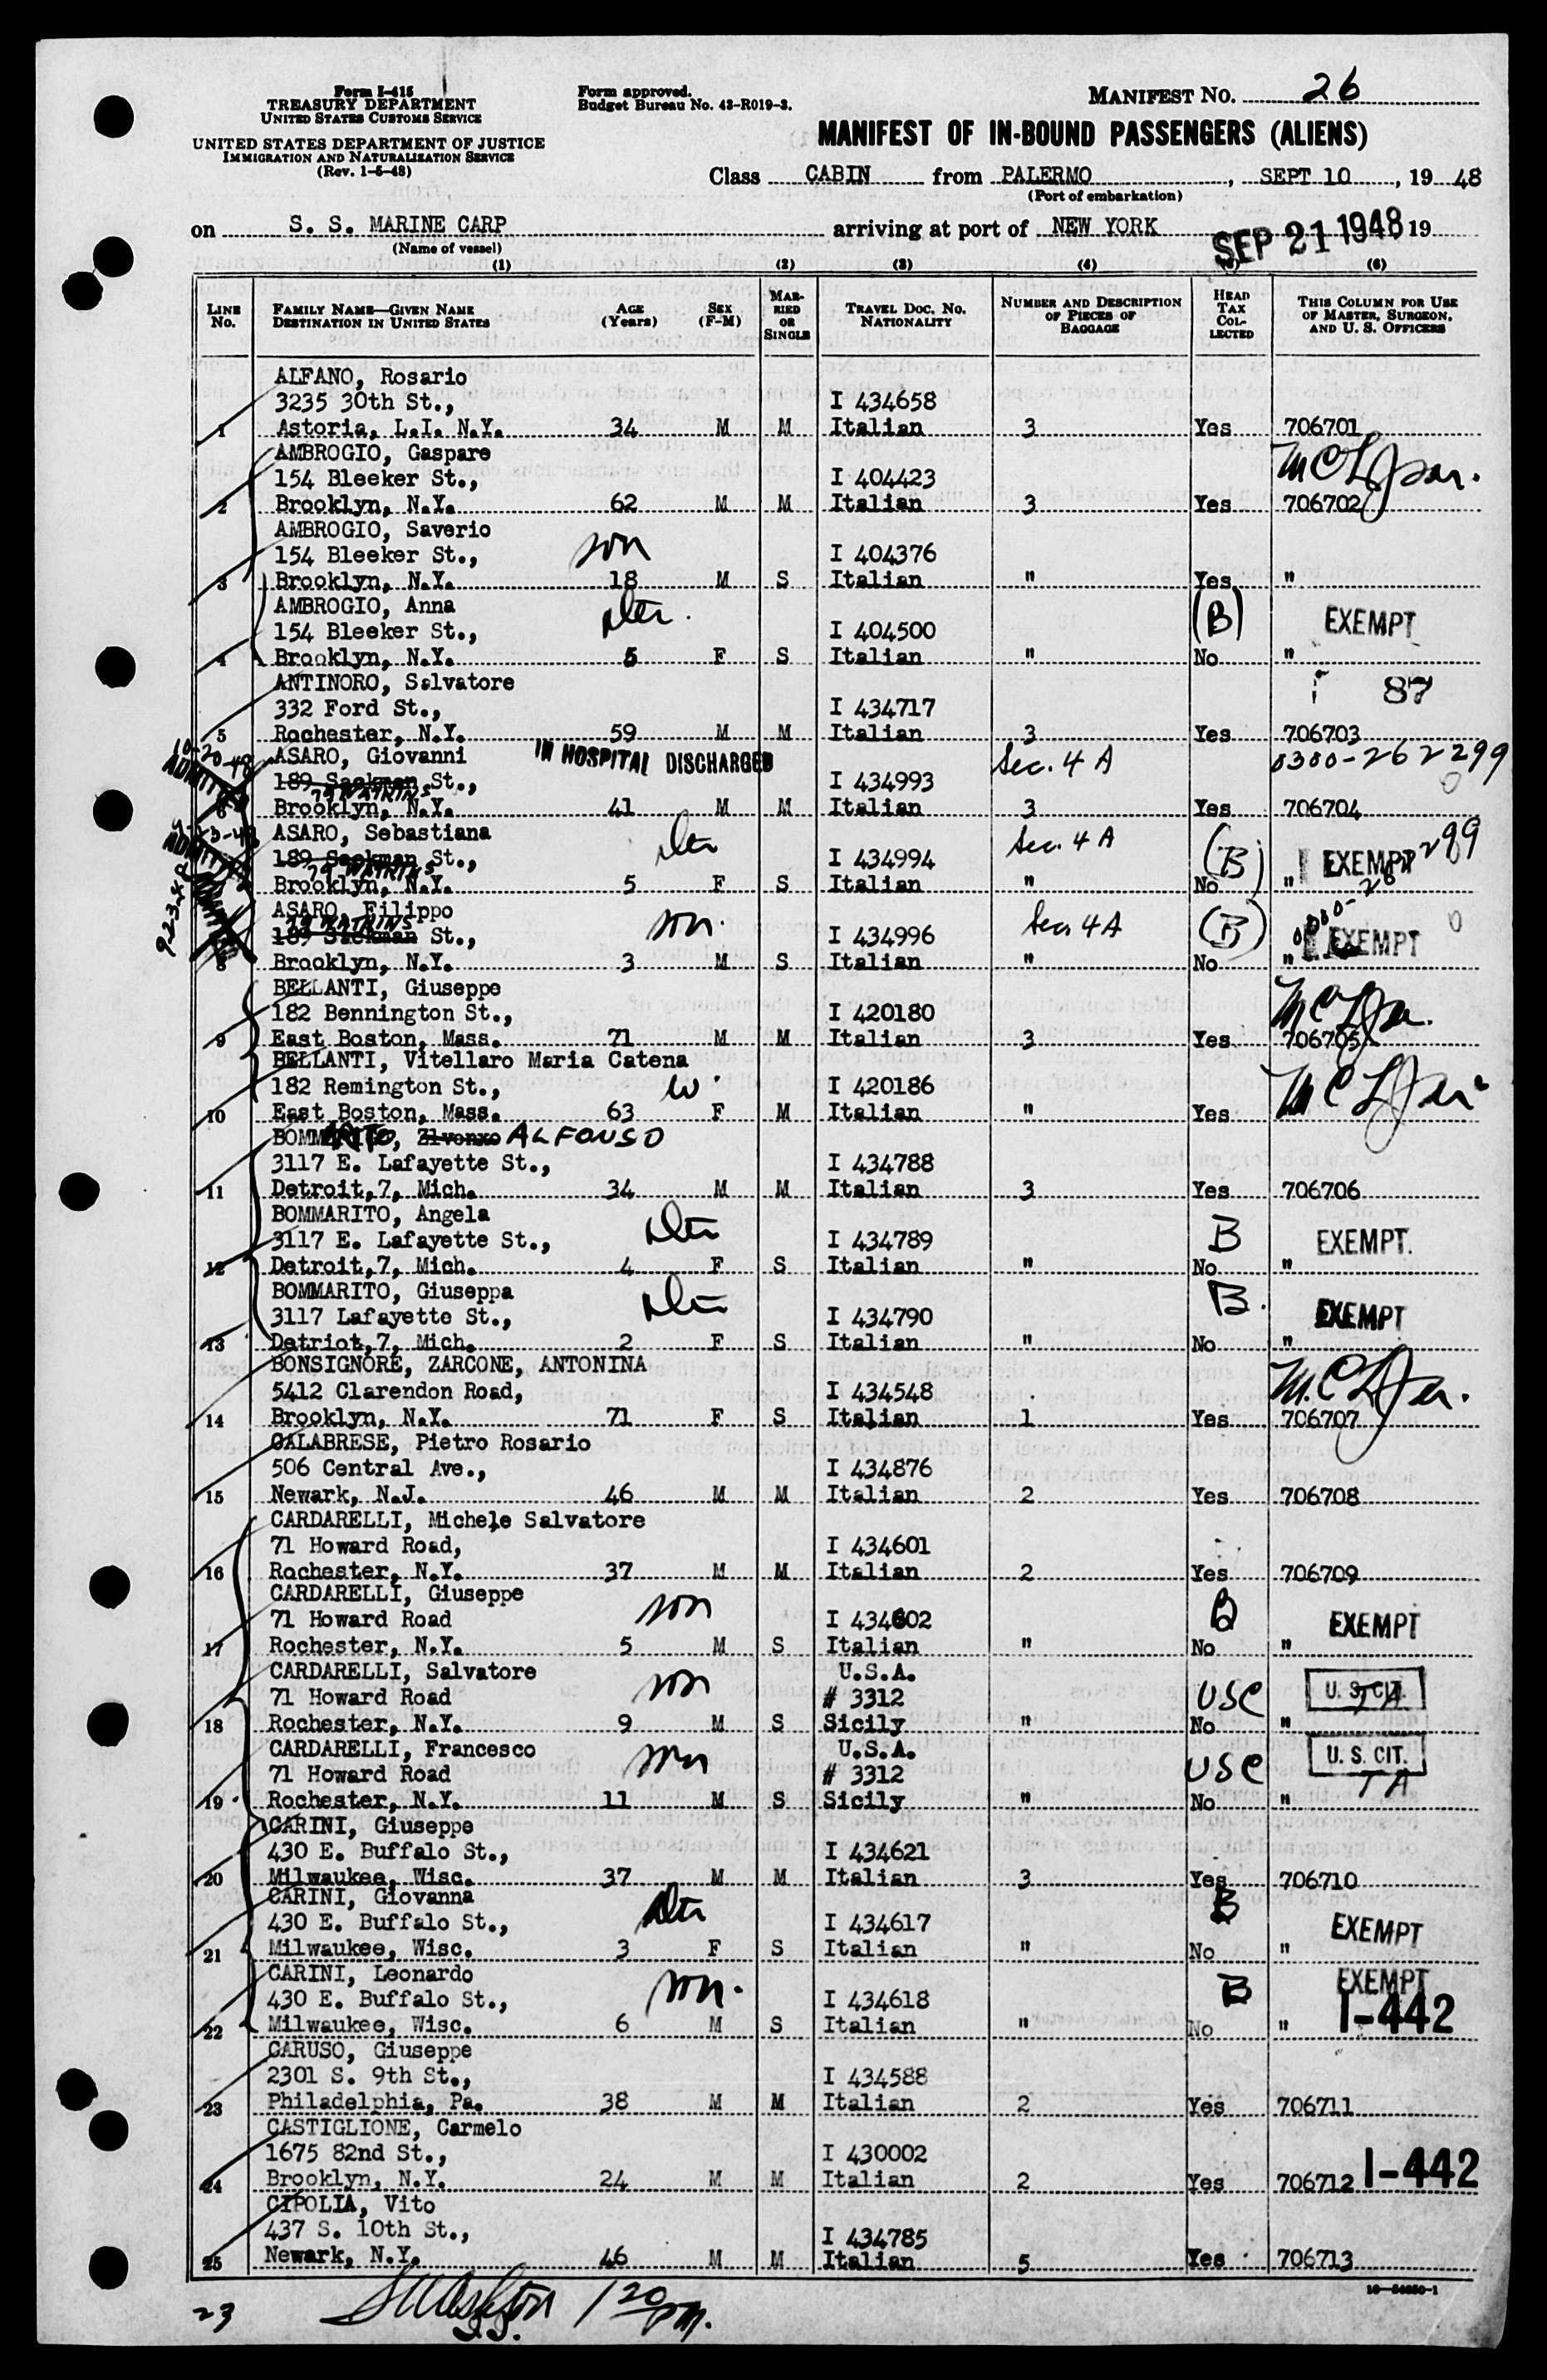 Form I-415
TREASURY DEPARTMENT
UNITED STATES CUSTOMS SERVICE
UNITED STATES DEPARTMENT OF JUSTICE
IMMIGRATION AND NATURALIZATION SERVICE
(Rev. 1-5-48)
Form approved.
Budget Bureau No. 43-R019-3.
MANIFEST NO. 26
MANIFEST OF IN-BOUND PASSENGERS (ALIENS)
Class CABIN from PALERMO, SEPT 10, 19 48
(Port of embarkation)
on S. S. MARINE CARP arriving at port of NEW YORK SEP 21 1948 19
(Name of vessel)
(1) (2) (3) (4) (6)
LINE No. FAMILY NAME—GIVEN NAME DESTINATION IN UNITED STATES AGE (Years) SEX (F-M) MARRIED OR SINGLE TRAVEL DOC. NO. NATIONALITY NUMBER AND DESCRIPTION OF PIECES OF BAGGAGE HEAD TAX COLLECTED THIS COLUMN FOR USE OF MASTER, SURGEON, AND U. S. OFFICERS
ALFANO, Rosario
3235 30th St., I 434658
1 Astoria, L.I. N.Y. 34 M M Italian 3 Yes 706701
AMBROGIO, Gaspare
154 Bleeker St., I 404423
2 Brooklyn, N.Y. 62 M M Italian 3 Yes 706702
AMBROGIO, Saverio son
154 Bleeker St., I 404376
3 Brooklyn, N.Y. 18 M S Italian " Yes "
AMBROGIO, Anna dter. (B) EXEMPT
154 Bleeker St., I 404500
4 Brooklyn, N.Y. 5 F S Italian " No "
ANTINORO, Salvatore 87
332 Ford St., I 434717
5 Rochester, N.Y. 59 M M Italian 3 Yes 706703
10-20-48 ADMITTED
ASARO, Giovanni IN HOSPITAL DISCHARGED Sec. 4 A 0300-262299
189 Sackman St., I 434993
79 WATKINS
6 Brooklyn, N.Y. 41 M M Italian 3 Yes 706704
ADMITTED
ASARO, Sebastiana dter Sec. 4 A
189 Sackman St., I 434994 (B) EXEMPT
79 WATKINS
Brooklyn, N.Y. 5 F S Italian " No "
9-23-48
ASARO, Filippo son. Sec 4A (B)
79 WATKINS
189 Sackman St., I 434996 EXEMPT
8 Brooklyn, N.Y. 3 M S Italian " No "
BELLANTI, Giuseppe
182 Bennington St., I 420180
9 East Boston, Mass. 71 M M Italian 3 Yes 706705
BELLANTI, Vitellaro Maria Catena
182 Remington St., w. I 420186
10 East Boston, Mass. 63 F M Italian " Yes
BOMMARITO, Elvonzo ALFONSO
3117 E. Lafayette St., I 434788
11 Detroit,7, Mich. 34 M M Italian 3 Yes 706706
BOMMARITO, Angela dter
3117 E. Lafayette St., I 434789 B EXEMPT.
12 Detroit,7, Mich. 4 F S Italian " No "
BOMMARITO, Giuseppa dter B.
3117 Lafayette St., I 434790 EXEMPT
13 Detriot,7, Mich. 2 F S Italian " No "
BONSIGNORE, ZARCONE, ANTONINA
5412 Clarendon Road, I 434548
14 Brooklyn, N.Y. 71 F S Italian 1 Yes 706707
CALABRESE, Pietro Rosario
506 Central Ave., I 434876
15 Newark, N.J. 46 M M Italian 2 Yes 706708
CARDARELLI, Michele Salvatore
71 Howard Road, I 434601
16 Rochester, N.Y. 37 M M Italian 2 Yes 706709
CARDARELLI, Giuseppe son
71 Howard Road I 434602 B EXEMPT
17 Rochester, N.Y. 5 M S Italian " No "
CARDARELLI, Salvatore son U.S.A.
71 Howard Road # 3312 USC U. S. CIT.
18 Rochester, N.Y. 9 M S Sicily " No "
CARDARELLI, Francesco son U.S.A. U. S. CIT.
71 Howard Road # 3312 USC TA
19 Rochester, N.Y. 11 M S Sicily " No "
CARINI, Giuseppe
430 E. Buffalo St., I 434621
20 Milwaukee, Wisc. 37 M M Italian 3 Yes 706710
CARINI, Giovanna dter B
430 E. Buffalo St., I 434617 EXEMPT
21 Milwaukee, Wisc. 3 F S Italian " No "
CARINI, Leonardo son. B EXEMPT
430 E. Buffalo St., I 434618 I-442
22 Milwaukee, Wisc. 6 M S Italian " No "
CARUSO, Giuseppe
2301 S. 9th St., I 434588
23 Philadelphia, Pa. 38 M M Italian 2 Yes 706711
CASTIGLIONE, Carmelo
1675 82nd St., I 430002
24 Brooklyn, N.Y. 24 M M Italian 2 Yes 706712 I-442
CIPOLIA, Vito
437 S. 10th St., I 434785
25 Newark, N.Y. 46 M M Italian 5 Yes 706713
23 1 20 PM.